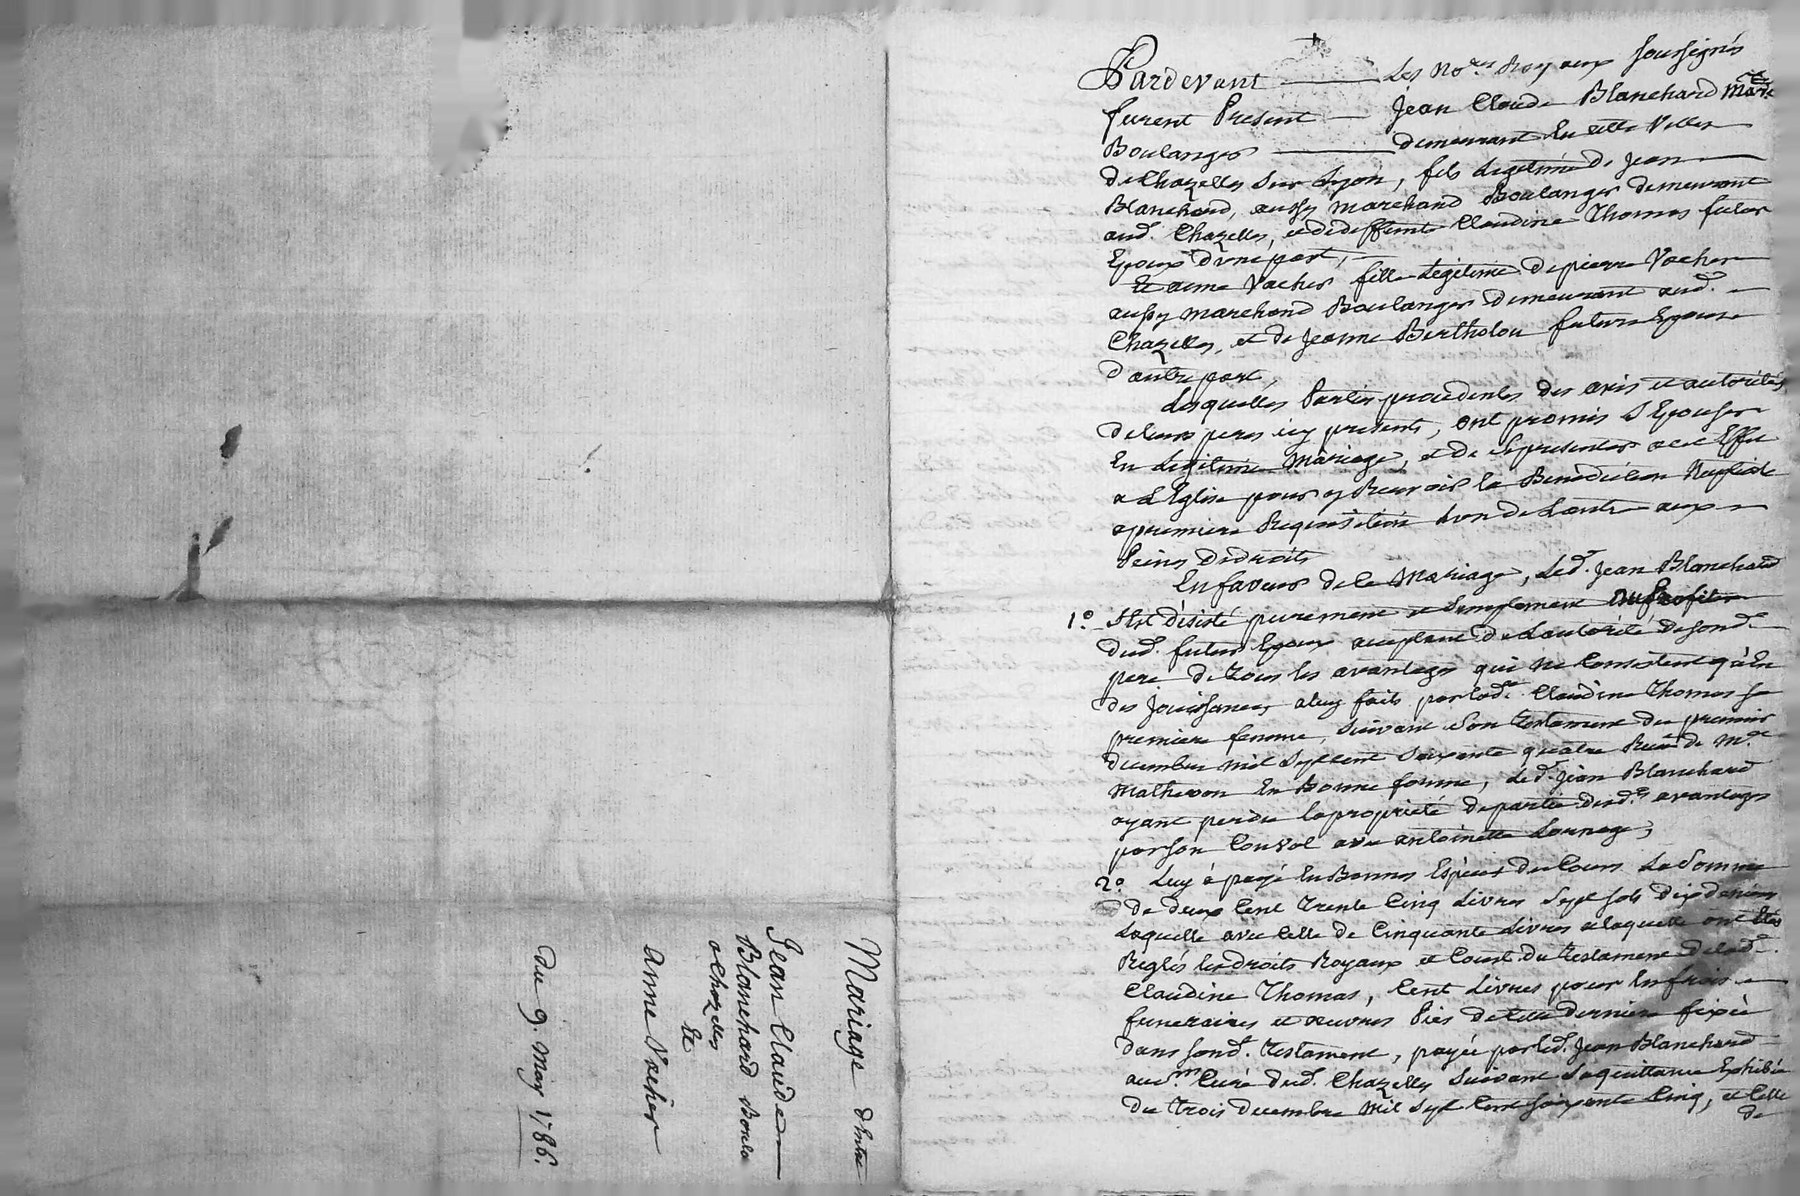 Mariage d'Entre
Jean Claude
Blanchard Boul.
a Chazelles
Et
anne Vacher
du 9. may 1786.
Pardevant — Les No.res Royaux soussignés
furent Present — Jean Claude Blanchard Mard
Boulanger — demeurant En cette Ville
de Chazelles sur Lyon, fils Legitime de Jean
Blanchard, aussy marchand Boulanger demeurant
aud. Chazelles, et de deffunte Claudine Thomas futur
Epoux d'une part,
Et anne Vacher fille Legitime de pierre Vacher
aussy marchand Boulanger demeurant aud.
Chazelles, et de Jeanne Bertholou future Epouse
d'autre part,
Lesquelles Parties procedentes des avis et autorités
de leurs peres icy presents, ont promis s'Epouser
En Legitime Mariage, et de se presenter a cet Effet
a L'Eglise pour y Recevoir la Benediction Nuptiale
a premiere Requisition L'un de L'autre aux
Peines de droits
En faveur de ce Mariage, Led. Jean Blanchard
1.o S'est désisté purement et simplement au profit
dud. futur Epoux acceptant de L'autorité de sond.
pere de tous les avantages qui ne Consistent qu'en
des jouissances a luy faits par lad.e Claudine Thomas sa
premiere femme, suivant son testament du premier
decembre mil sept cent soixante quatre Recu de M.e
Mathevon En Bonne forme, led. Jean Blanchard
ayant perdu la proprieté de partie desd.s avantages
par son Convol avec antoinette
2.o Luy a payé En Bonnes Espèces du Cours La Somme
de deux Cent Trente Cinq Livres sept sols dix deniers
Laquelle avec Celle de Cinquante Livres a laquelle ont Etés
Reglés les droits Royaux et Coust du testament de lad.e
Claudine Thomas, Cent Livres pour les frais
funeraires et œuvres Pies de cette derniere fixée
dans sond. Testament, payée par led. Jean Blanchard
au s.r Curé dud. Chazelles suivant sa quittance Exhibée
du trois decembre mil sept Cent soixante Cinq, et Celle
de